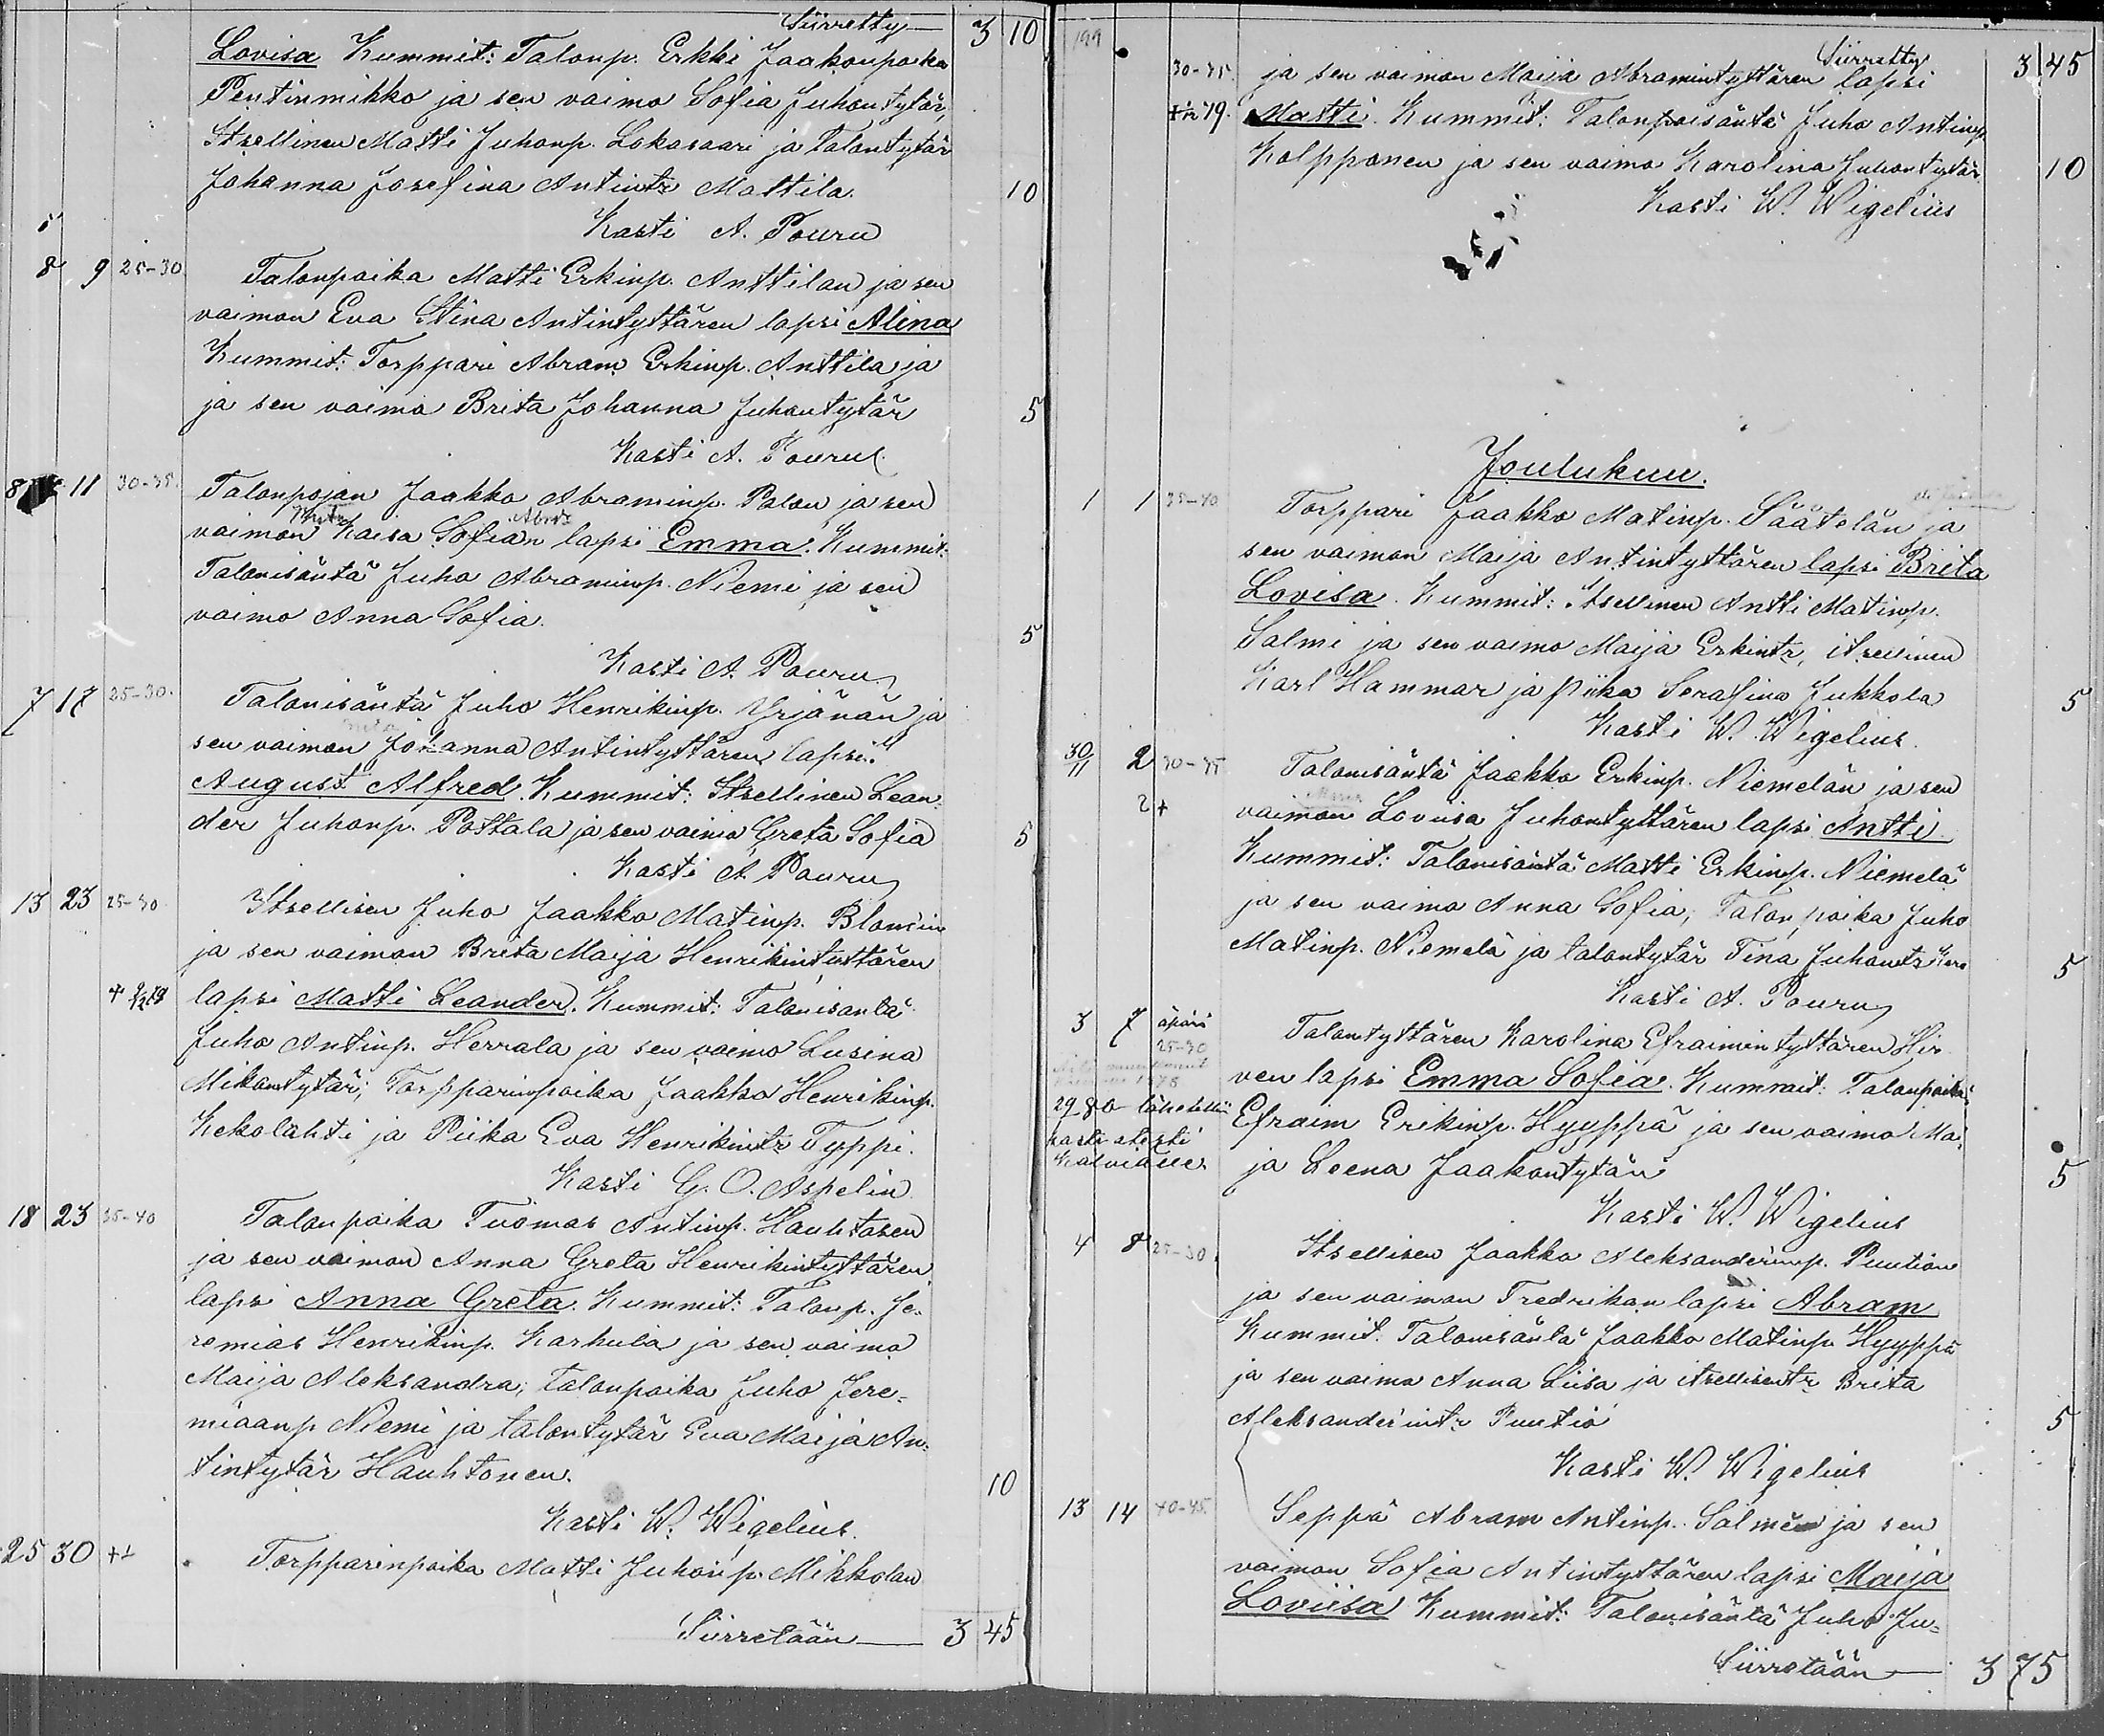 Siirretty 3 10
Lovisa Kummit: Talonp. Erkki Jaakonpoika
Pentinmikko ja sen vaimo Sofia Juhontytär,
Itsellinen Matti Juhonp. Lokasaari ja Talontytär
Johanna Josefina Antintr Mattila. 10
Kasti A. Pouru
8 9 25-30 Talonpoika Matti Erkinp. Anttilan ja sen
vaimon Eva Stina Antintyttären lapsi Alina
Kummit: Torppari Abram Erkinp. Anttila ja
ja sen vaimo Brita Johanna Juhontytär 5
Kasti A. Pouru
8 11 30-35. Talonpojan Jaakko Abraminp. Palon ja sen
vaimon Kaisa Sofian lapsi Emma. Kummit:
Talonisäntä Juho Abraminp. Niemi ja sen
vaimo Anna Sofia. 5
Kasti A. Pouru
7 17 25-30. Talonisäntä Juho Henrikinp. Yrjänän ja
sen vaimon Johanna Antintyttären lapsi:
August Alfred. Kummit: Itsellinen Lean-
der Juhonp. Pottala ja sen vaimo Greta Sofia 5
Kasti A. Pouru
13 23 25-30 Itsellisen Juho Jaakko Matinp. Blomin
ja sen vaimon Brita Maija Henrikintyttären
lapsi Matti Leander. Kummit: Talonisäntä
Juho Antinp. Herrala ja sen vaimo Lusina
Mikontytär; Torpparinpoika Jaakko Henrikinp.
Kekolahti ja Piika Eva Henrikintr Typpi.
Kasti G. O. Aspelin
18 23 35-40 Talonpoika Tuomas Antinp. Hauhtosen
ja sen vaimon Anna Greta Henrikintyttären
lapsi Anna Greta. Kummit: Talonp. Je-
remias Henrikinp. Karhula ja sen vaimo
Maija Aleksandra; talonpoika Juho Jere-
miaanp Niemi ja talontytär Eva Maija An-
tintytär Hauhtonen. 10
Kasti W. Wigelius.
25 30 Torpparinpoika Matti Juhonp. Mikkolan
Siirretään 3 45
199
Siirretty 3 45
30-35. ja sen vaimon Maija Abramintyttären lapsi
Matti. Kummit: Talonpoisäntä Juho Antinp
Kolpponen ja sen vaimo Karolina Juhontytär 10
Kasti W. Wigelius
Joulukuu.
1 1 35-40 Torppari Jaakko Matinp. Säätelän ja
sen vaimon Maija Antintyttären lapsi Brita
Lovisa. Kummit: Itsellinen Antti Matinp.
Salmi ja sen vaimo Maija Erkintr, itsellinen
Karl Hammar ja piika Serafina Jukkola 5
Kasti W. Wigelius.
30/11 2 30-35 Talonisäntä Jaakko Erkinp. Niemelän ja sen
2 + vaimon Loviisa Juhontyttären lapsi Antti
Kummit: Talonisäntä Matti Erkinp. Niemelä
ja sen vaimo Anna Sofia; Talonpoika Juho
Matinp. Niemelä ja talontytär Tina Juhontr 5
Kasti A. Pouru
3 7 äpärä Talontyttären Karolina Efraimintyttären Hir
25-30
ven lapsi Emma Sofia. Kummit: Talonpoika
Efraim Erikinp. Hyyppä ja sen vaimo Mai
Kälviälle ja Leena Jaakontytär 5
Kasti W. Wigelius
4 8 25-30. Itsellisen Jaakko Aleksanderinp. Puution
ja sen vaimon Fredrikan lapsi Abram
Kummit. Talonisäntä Jaakko Matinp Hyyppä
ja sen vaimo Anna Liisa ja itsellisentr Brita
Aleksanderintr Puutio 5
Kasti W. Wigelius
13 14 40-45. Seppä Abram Antinp. Salmen ja sen
vaimon Sofia Antintyttären lapsi Maija
Loviisa Kummit: Talonisäntä Juho Ju-
Siirretään 3 75